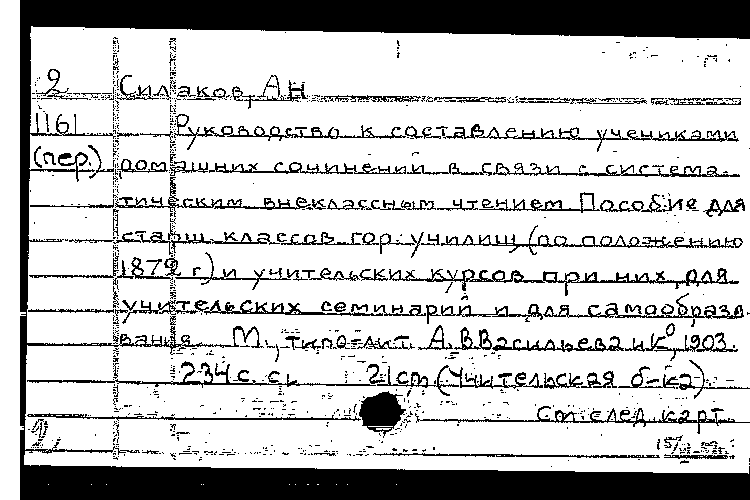 2 Силаков, А Н
1161 Руководство к составлению учениками
(пер.) домашних сочинений в связи с система
тическим внеклассным чтением Пособие для
старш. классов гор. училищ, (по положению
1872 г.) и учительских курсов при них, для
учительских семинарий и для самообразо
вания. М., типо-лит. А. В Васильева и Ко, 1903.
234 с. 21 см (Учительская б-ка)
См. след. карт.
2,